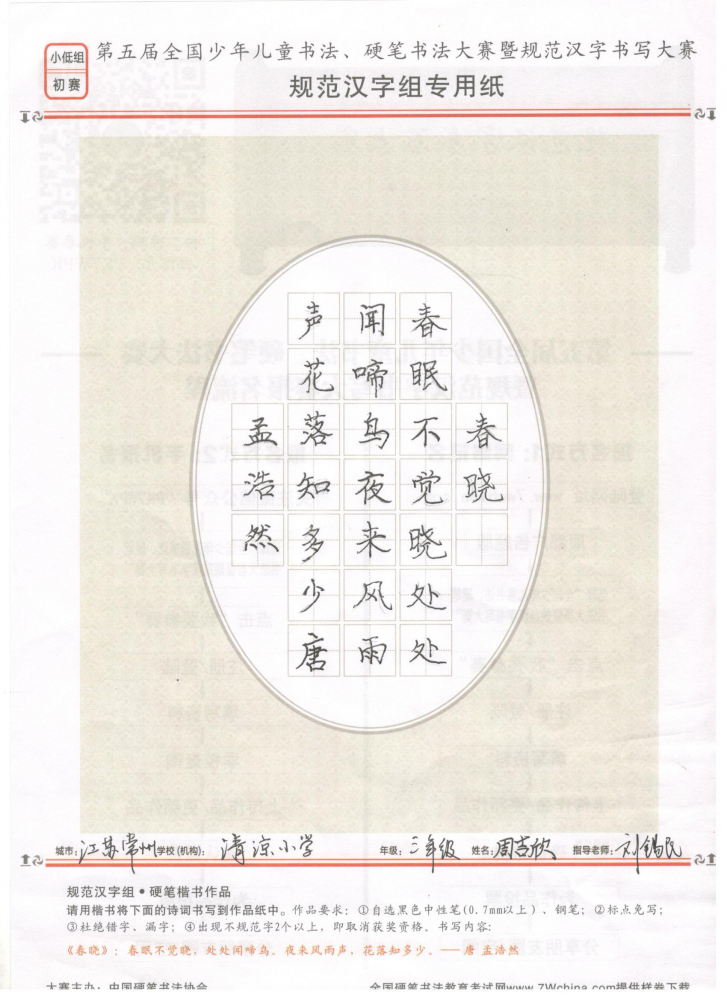 小低组
初赛
第五届全国少年儿童书法、硬笔书法大赛暨规范汉字书写大赛
规范汉字组专用纸
春晓
春眠不觉晓处处
闻啼鸟夜来风雨
声花落知多少唐
孟浩然
城市:江苏常州 学校(机构):清凉小学 年级:三年级 姓名:周吉欣 指导老师:刘锡民
规范汉字组●硬笔楷书作品
请用楷书将下面的诗词书写到作品纸中。作品要求:①自选黑色中性笔(0.7mm以上)、钢笔;②标点免写;
③杜绝错字、漏字;④出现不规范字2个以上,即取消获奖资格。书写内容:
《春晓》:春眠不觉晓,处处闻啼鸟。夜来风雨声,花落知多少。——唐 孟浩然
大赛主办:中国硬笔书法协会 全国硬笔书法教育考试网www.7Wchina.com提供样卷下载